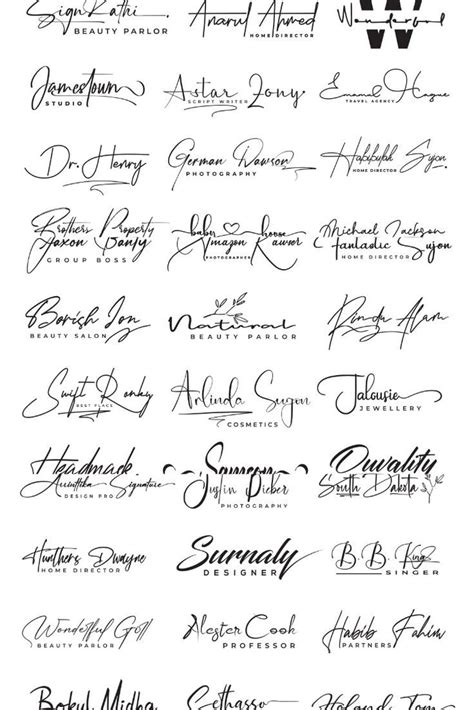 SignRathi
BEAUTY PARLOR
Anarul Ahmed
HOME DIRECTOR
W
Wonderbod
Jamestown
STUDIO
Astar Jony
SCRIPT WRITER
Enamul Hague
TRAVEL AGENCY
Dr. Henry
German Dawson
PHOTOGRAPHY
Habibulah Sujon
HOME DIRECTOR
Brothers Property
Jaxon Banty
GROUP BOSS
baby house
Amazon Raweer
PHOTOGRAPHER
Michael Jackson
fantastic Sujon
HOME DIRECTOR
Borish Jon
BEAUTY SALON
Natural
BEAUTY PARLOR
Rindu Alam
Swift Ronky
BEST PLACE
Arlinda Sugon
COSMETICS
Jalousie
JEWELLERY
Headmade
Arunttika Signature
DESIGN PRO
Justin Bieber
PHOTOGRAPHY
Duvality
South Dakota
Hunthers Dwayne
HOME DIRECTOR
Surnaly
DESIGNER
B.B. King
SINGER
Wonderful Goll
BEAUTY PARLOR
Alester Cook
PROFESSOR
Habib Fahim
PARTNERS
Bokul Midha
Sethasso
Holand Tom